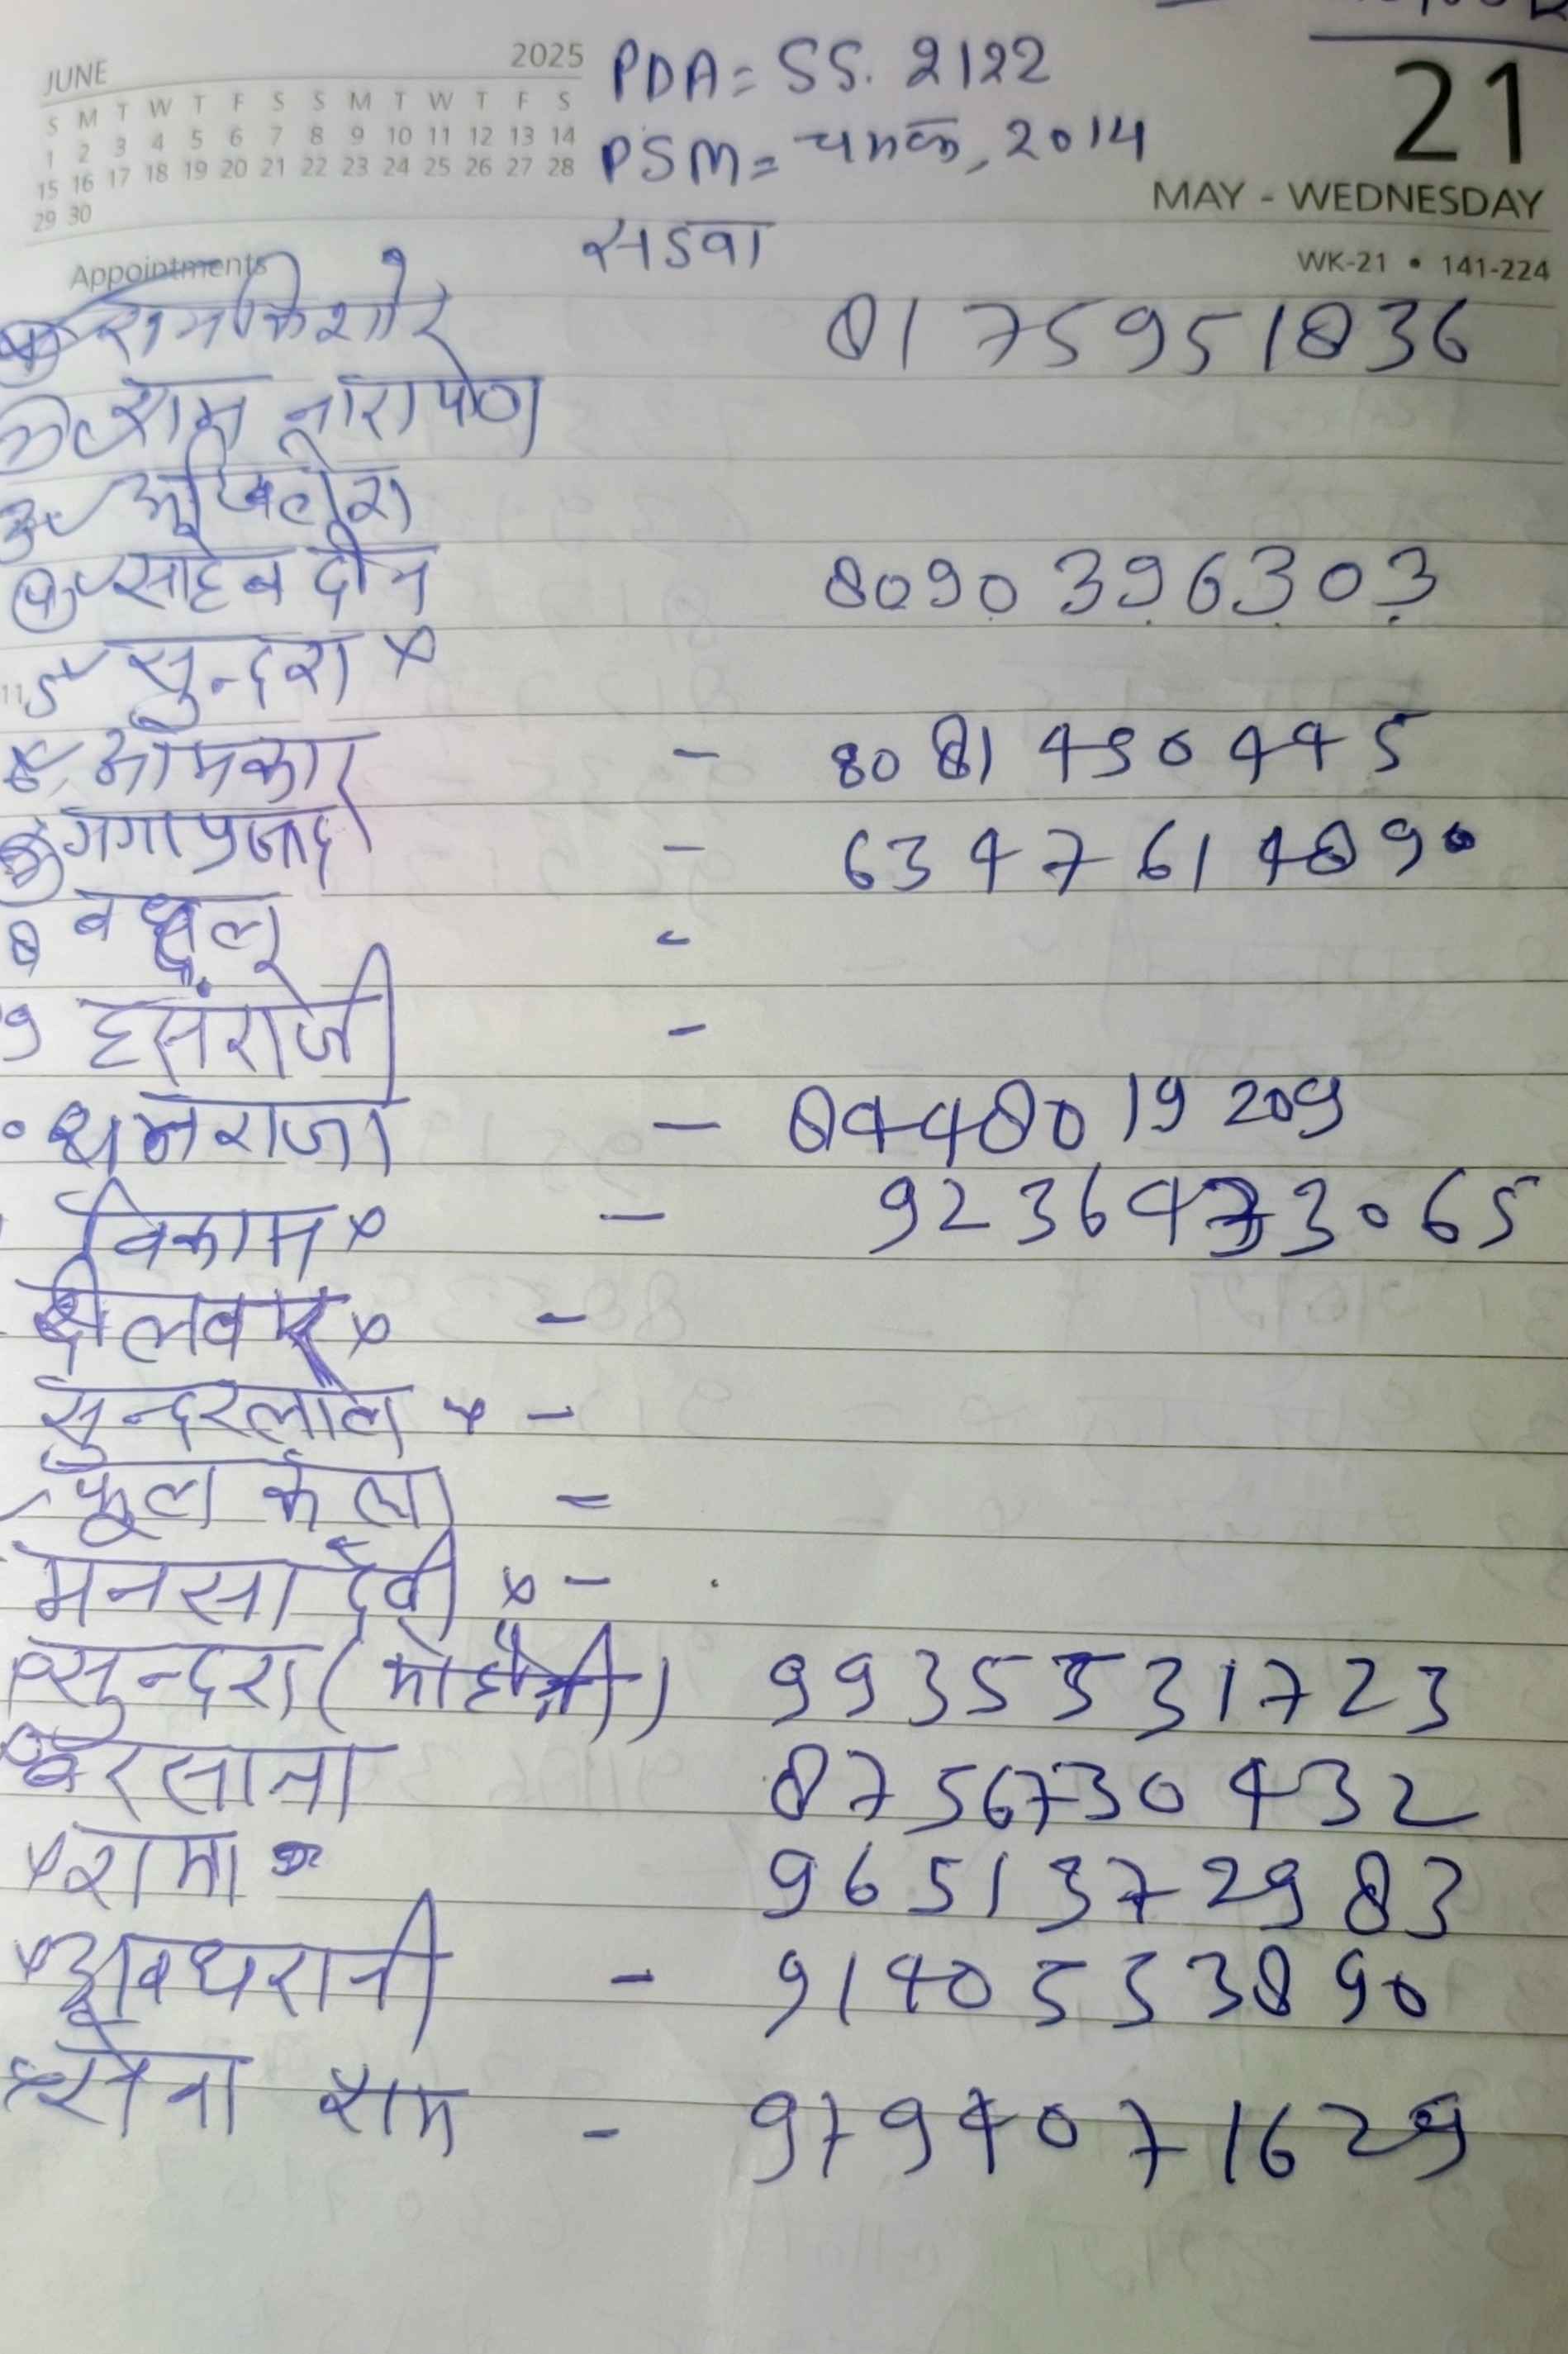 JUNE 2025
S M T W T F S S M T W T F S
1 2 3 4 5 6 7 8 9 10 11 12 13 14
15 16 17 18 19 20 21 22 23 24 25 26 27 28
29 30
PDA = SS. 2122
PSM = चमक, 2014
21
MAY - WEDNESDAY
सडवा
WK-21 • 141-224
Appointments
रामकिशोर 8175951836
राम नारायण
3 अखिलेश
4 साहेब दीन 8090396303
5 सुन्दरा x
ओमकार - 8081450445
गंगाप्रसाद - 6347614890
8 -
9 हंसराजी -
धनराजा - 8448019209
विकास x - 92364733065
x -
सुन्दरलाल x -
फूल केली =
मनसा देवी x -
सुन्दरा ( ) 9935531723
बरसाना 8756730432
रामा 9651372983
अवधरानी - 9140553890
सेवा राम - 9794071629